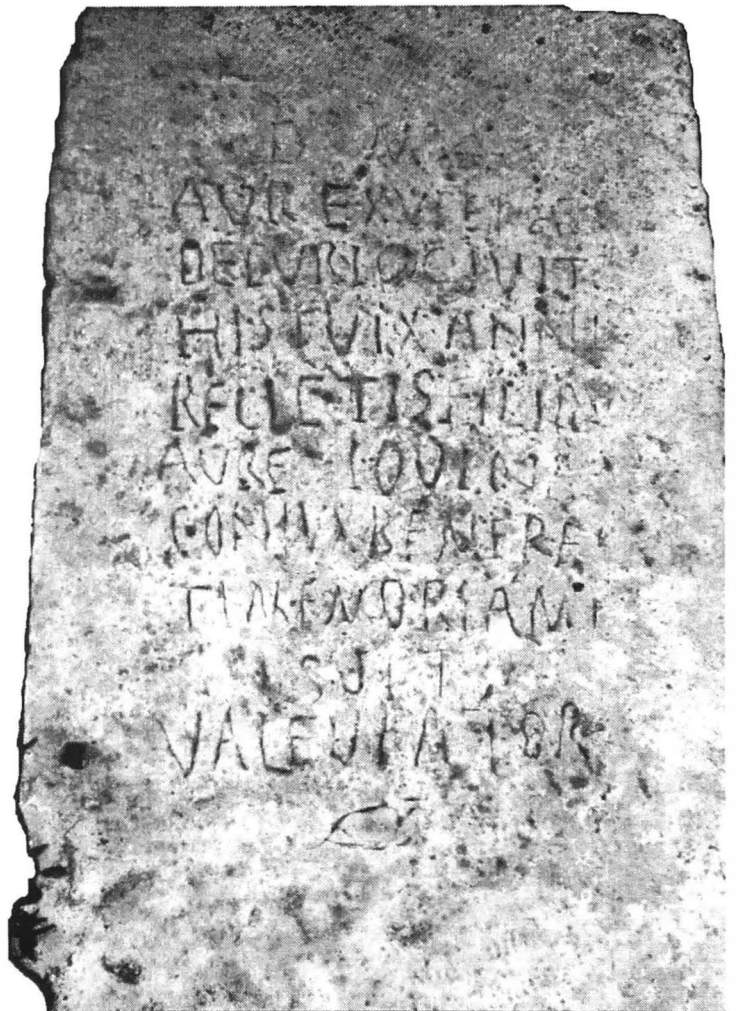 D M
AVR
DECVRIO CIVIT
HIST VIX ANN
FILIA
AVRE IOVIN
CONIVX BENERE
TI MEMORIAM
SVIT
VALE VIATOR